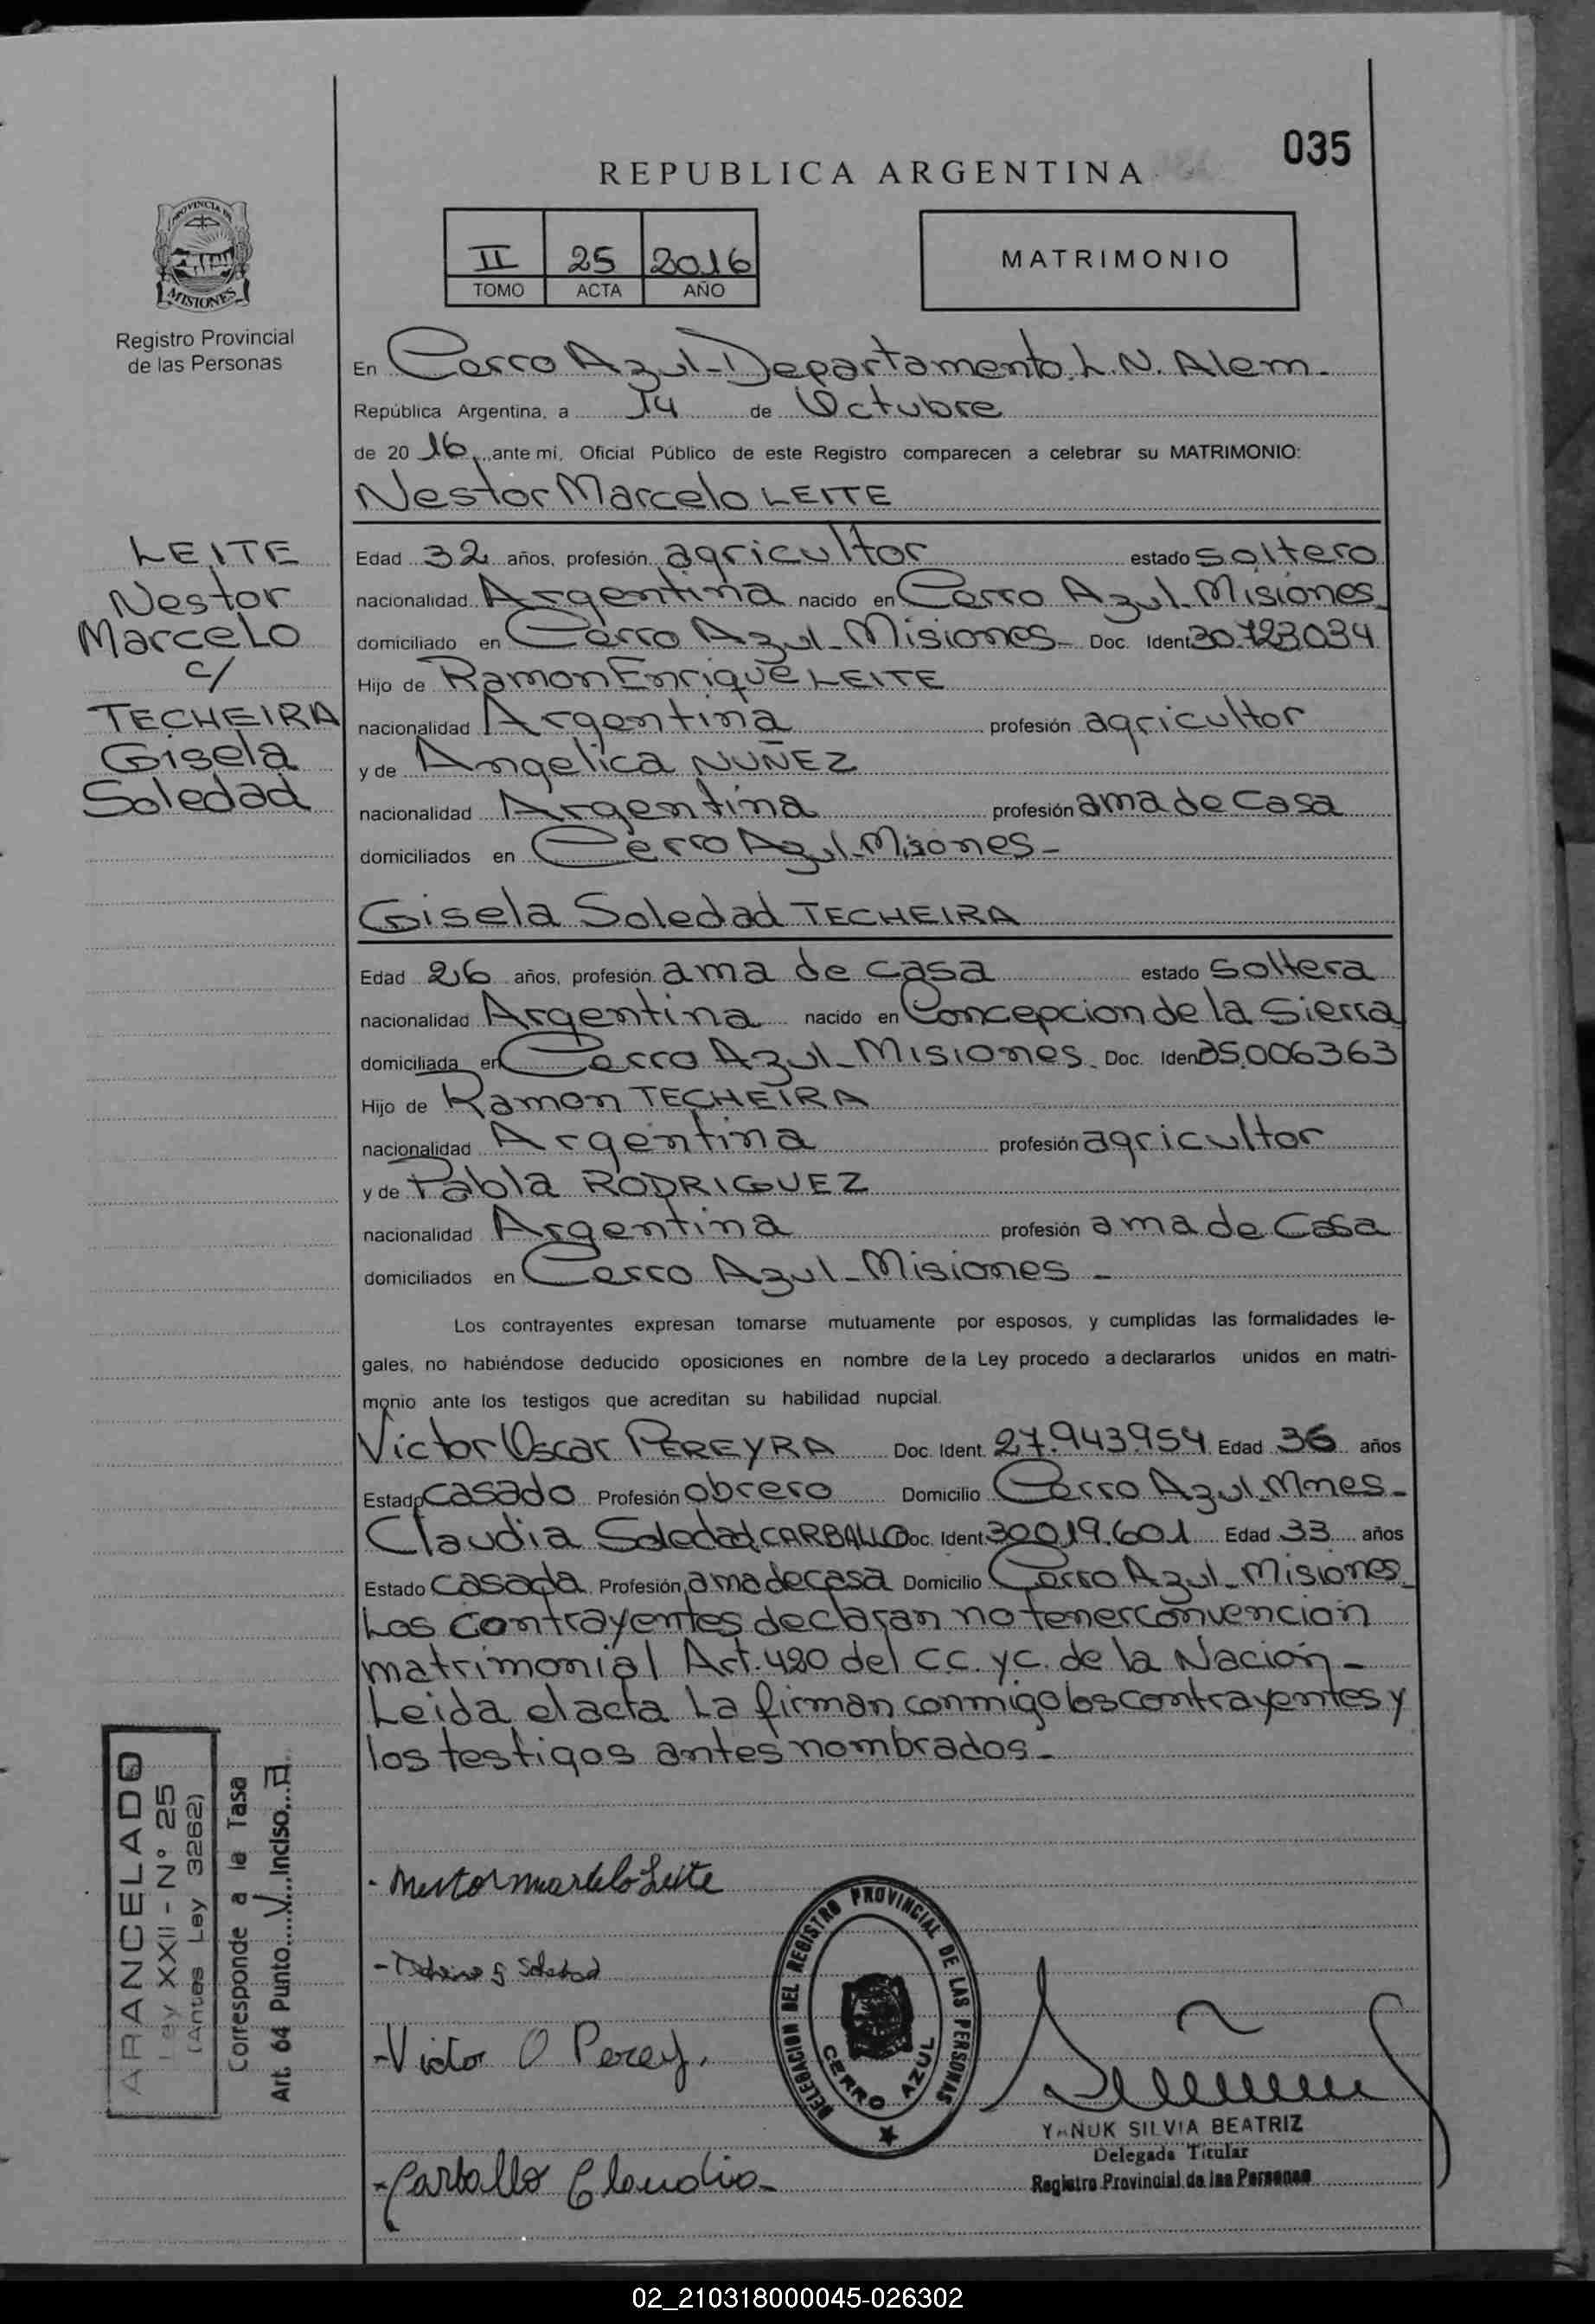 035
REPUBLICA ARGENTINA
II 25 2016
TOMO ACTA AÑO
MATRIMONIO
PROVINCIA DE
MISIONES
Registro Provincial
de las Personas
En Cerro Azul - Departamento. L. N. Alem -
República Argentina, a 14 de Octubre
de 2016, ante mi, Oficial Público de este Registro comparecen a celebrar su MATRIMONIO:
Nestor Marcelo LEITE
LEITE
Nestor
Marcelo
c/
TECHEIRA
Gisela
Soledad
Edad 32 años, profesión agricultor estado soltero
nacionalidad Argentina nacido en Cerro Azul - Misiones
domiciliado en Cerro Azul - Misiones - Doc. Ident 30.723.034
Hijo de Ramon Enrique LEITE
nacionalidad Argentina profesión agricultor
y de Angelica NUÑEZ
nacionalidad Argentina profesión ama de casa
domiciliados en Cerro Azul - Misones -
Gisela Soledad TECHEIRA
Edad 26 años, profesión ama de casa estado soltera
nacionalidad Argentina nacido en Concepcion de la Sierra
domiciliada en Cerro Azul - Misiones - Doc. Iden 35.006363
Hijo de Ramon TECHEIRA
nacionalidad Argentina profesión agricultor
y de Pabla RODRIGUEZ
nacionalidad Argentina profesión ama de Casa
domiciliados en Cerro Azul - Misiones -
Los contrayentes expresan tomarse mutuamente por esposos, y cumplidas las formalidades le-
gales, no habiéndose deducido oposiciones en nombre de la Ley procedo a declararlos unidos en matri-
monio ante los testigos que acreditan su habilidad nupcial.
Victor Oscar PEREYRA Doc. Ident. 27.943.954 Edad 36 años
Estado casado Profesión obrero Domicilio Cerro Azul - Mnes -
Claudia Soledad CARBALLO Doc. Ident. 30.019.601 Edad 33 años
Estado casada Profesión ama de casa Domicilio Cerro Azul - Misiones
Los contrayentes declaran no tener convencion
matrimonial Art. 420 del C.C. y C. de la Nación -
Leida el acta La firman conmigo los contrayentes y
los testigos antes nombrados -
ARANCELADO
Ley XXII - N° 25
(Antes Ley 3262)
Corresponde a la Tasa
Art. 64 Punto V Inciso
- Nestor Marcelo Leite
- Soledad
- Victor O Perey.
- Carballo Claudia -
DELEGACION DEL REGISTRO PROVINCIAL DE LAS PERSONAS
CERRO AZUL
YANUK SILVIA BEATRIZ
Delegada Titular
Registro Provincial de las Personas
02_210318000045-026302